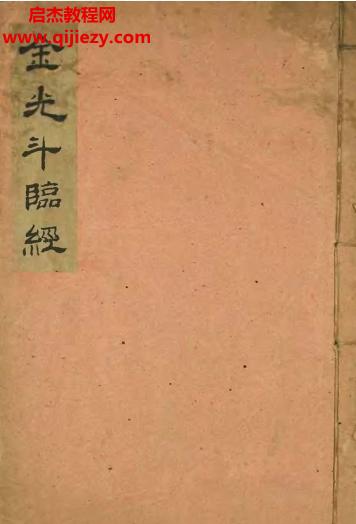 启杰教程网
www.qijiezy.com
金光斗臨經